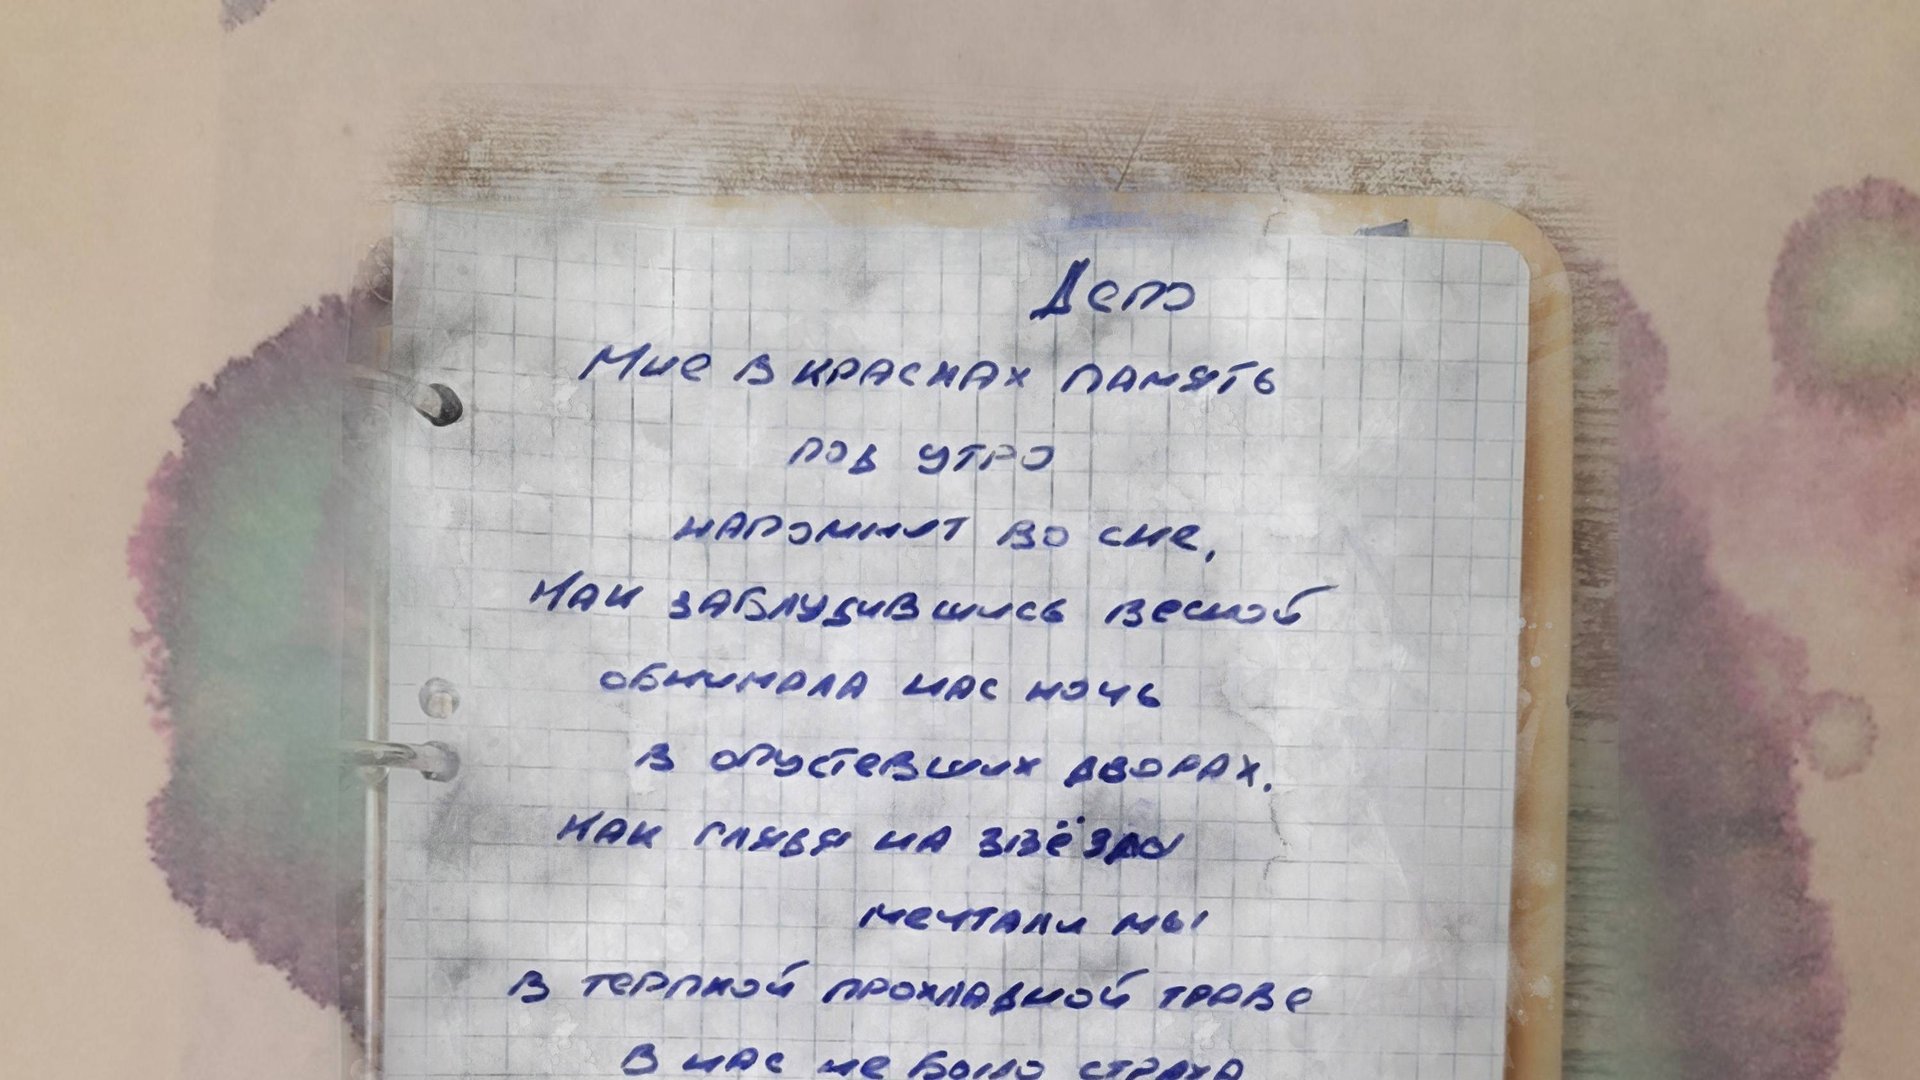 Депо
Мне в красках память
под утро
напомнит во сне,
Как заблудившись весной
обнимала нас ночь
в опустевших дворах.
Как глядя на звёзды
мечтали мы
в терпкой прохладной траве
В нас не было страха